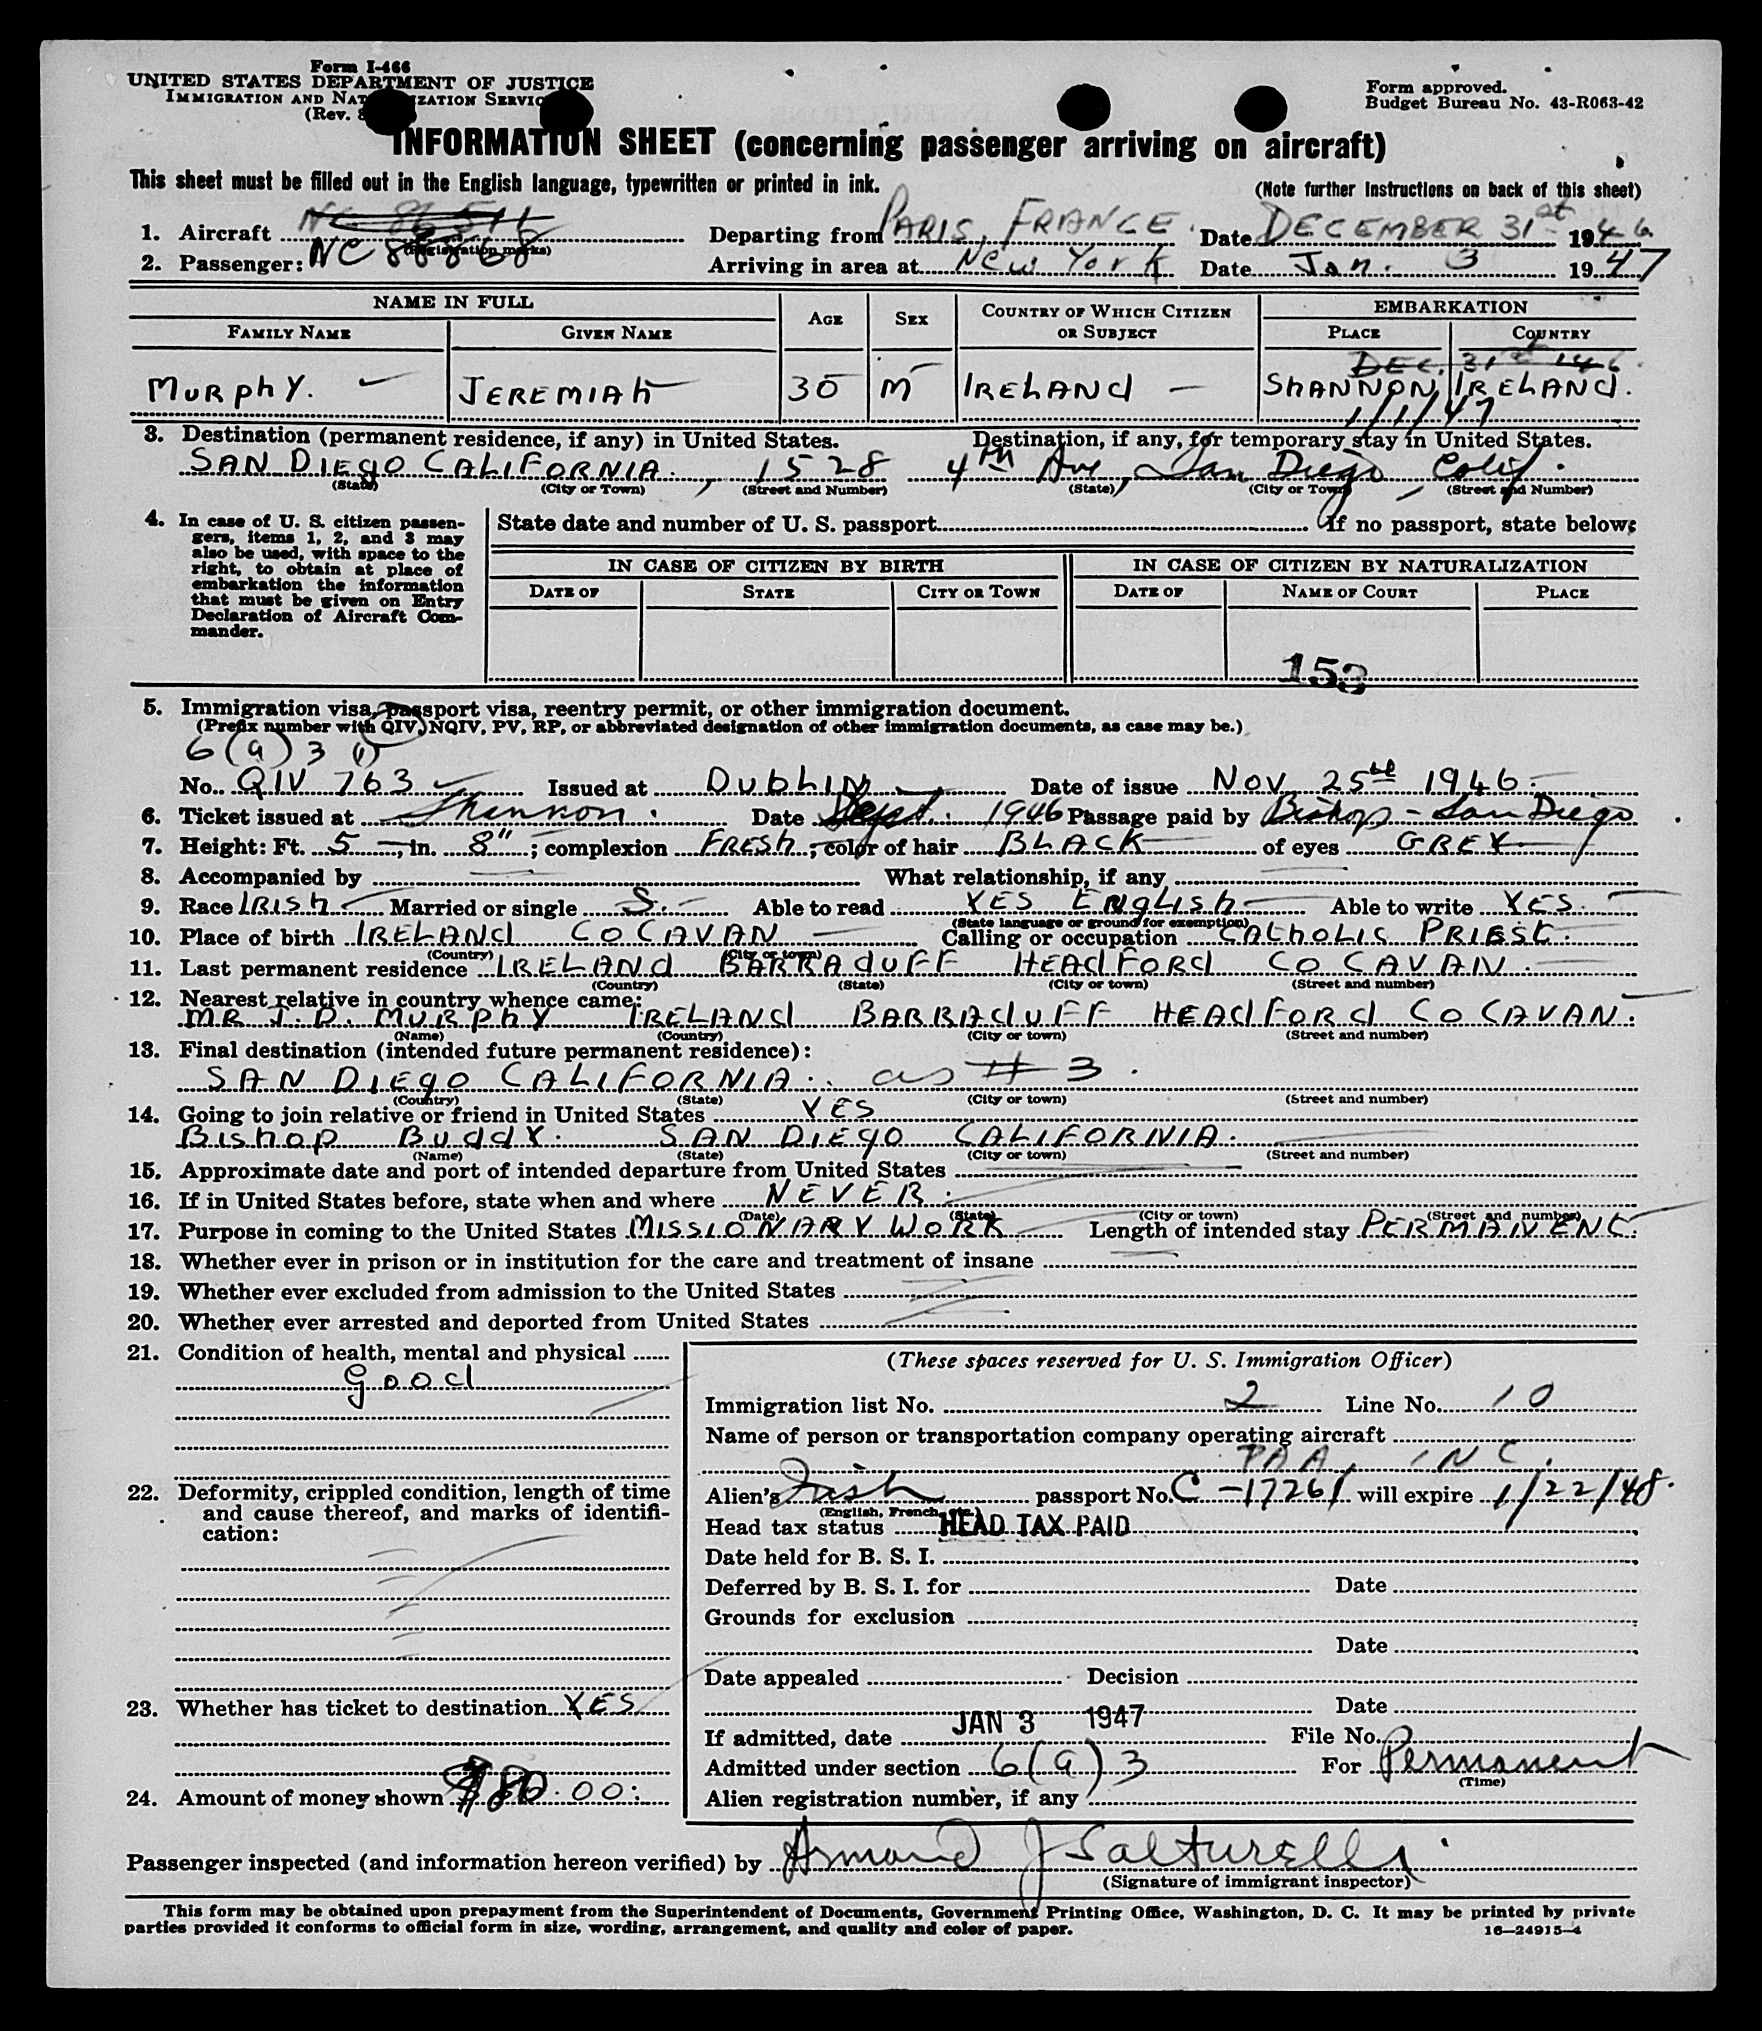 Form I-466
UNITED STATES DEPARTMENT OF JUSTICE
IMMIGRATION AND NATURALIZATION SERVICE
(Rev.
Form approved.
Budget Bureau No. 43-R063-42
INFORMATION SHEET (concerning passenger arriving on aircraft)
This sheet must be filled out in the English language, typewritten or printed in ink.
(Note further instructions on back of this sheet)
1. Aircraft NC 86516 Departing from PARIS, FRANCE. Date DECEMBER 31st 1946
(Registration marks)
2. Passenger: NC 88868 Arriving in area at New York Date Jan. 3 1947
NAME IN FULL AGE SEX COUNTRY OF WHICH CITIZEN OR SUBJECT EMBARKATION
FAMILY NAME GIVEN NAME PLACE COUNTRY
DEC. 31st 46.
MURPHY. JEREMIAH 30 M IRELAND SHANNON, IRELAND.
1/1/47
3. Destination (permanent residence, if any) in United States. Destination, if any, for temporary stay in United States.
SAN DIEGO CALIFORNIA, 1528 4th Ave, San Diego, Calif.
(State) (City or Town) (Street and Number) (State) (City or Town) (Street and Number)
4. In case of U. S. citizen passengers, items 1, 2, and 3 may also be used, with space to the right, to obtain at place of embarkation the information that must be given on Entry Declaration of Aircraft Commander.
State date and number of U. S. passport If no passport, state below:
IN CASE OF CITIZEN BY BIRTH IN CASE OF CITIZEN BY NATURALIZATION
DATE OF STATE CITY OR TOWN DATE OF NAME OF COURT PLACE
153
5. Immigration visa, passport visa, reentry permit, or other immigration document.
(Prefix number with QIV, NQIV, PV, RP, or abbreviated designation of other immigration documents, as case may be.)
6(a)3
No. QIV 763 Issued at DUBLIN Date of issue NOV 25th 1946
6. Ticket issued at Shannon. Date Sept. 1946 Passage paid by Bishop - San Diego
7. Height: Ft. 5, in. 8"; complexion FRESH; color of hair BLACK of eyes GREY
8. Accompanied by What relationship, if any
9. Race IRISH Married or single S. Able to read YES ENGLISH Able to write YES.
(State language or ground for exemption)
10. Place of birth IRELAND CO CAVAN Calling or occupation CATHOLIC PRIEST.
(Country) (City or town)
11. Last permanent residence IRELAND BARRADUFF HEADFORD CO CAVAN.
(Country) (State) (City or town) (Street and number)
12. Nearest relative in country whence came:
MR J.D. MURPHY IRELAND BARRADUFF HEADFORD CO CAVAN.
(Name) (Country) (City or town) (Street and number)
13. Final destination (intended future permanent residence):
SAN DIEGO CALIFORNIA. as # 3.
(Country) (State) (City or town) (Street and number)
14. Going to join relative or friend in United States YES
BISHOP BUDDY. SAN DIEGO CALIFORNIA.
(Name) (State) (City or town) (Street and number)
15. Approximate date and port of intended departure from United States
16. If in United States before, state when and where NEVER.
(Date) (State) (City or town) (Street and number)
17. Purpose in coming to the United States MISSIONARY WORK Length of intended stay PERMANENT.
18. Whether ever in prison or in institution for the care and treatment of insane
19. Whether ever excluded from admission to the United States
20. Whether ever arrested and deported from United States
21. Condition of health, mental and physical
Good
22. Deformity, crippled condition, length of time and cause thereof, and marks of identification:
23. Whether has ticket to destination YES
24. Amount of money shown $80.00:
(These spaces reserved for U. S. Immigration Officer)
Immigration list No. 2 Line No. 10
Name of person or transportation company operating aircraft
PAA, INC.
Alien's Irish passport No. C-17261 will expire 1/22/48.
(English, French, etc.)
Head tax status HEAD TAX PAID
Date held for B. S. I.
Deferred by B. S. I. for Date
Grounds for exclusion
Date
Date appealed Decision
Date
If admitted, date JAN 3 1947 File No.
Admitted under section 6(a)3 For Permanent
(Time)
Alien registration number, if any
Passenger inspected (and information hereon verified) by Armand J Salturelli
(Signature of immigrant inspector)
This form may be obtained upon prepayment from the Superintendent of Documents, Government Printing Office, Washington, D. C. It may be printed by private
parties provided it conforms to official form in size, wording, arrangement, and quality and color of paper.
16—24915-4